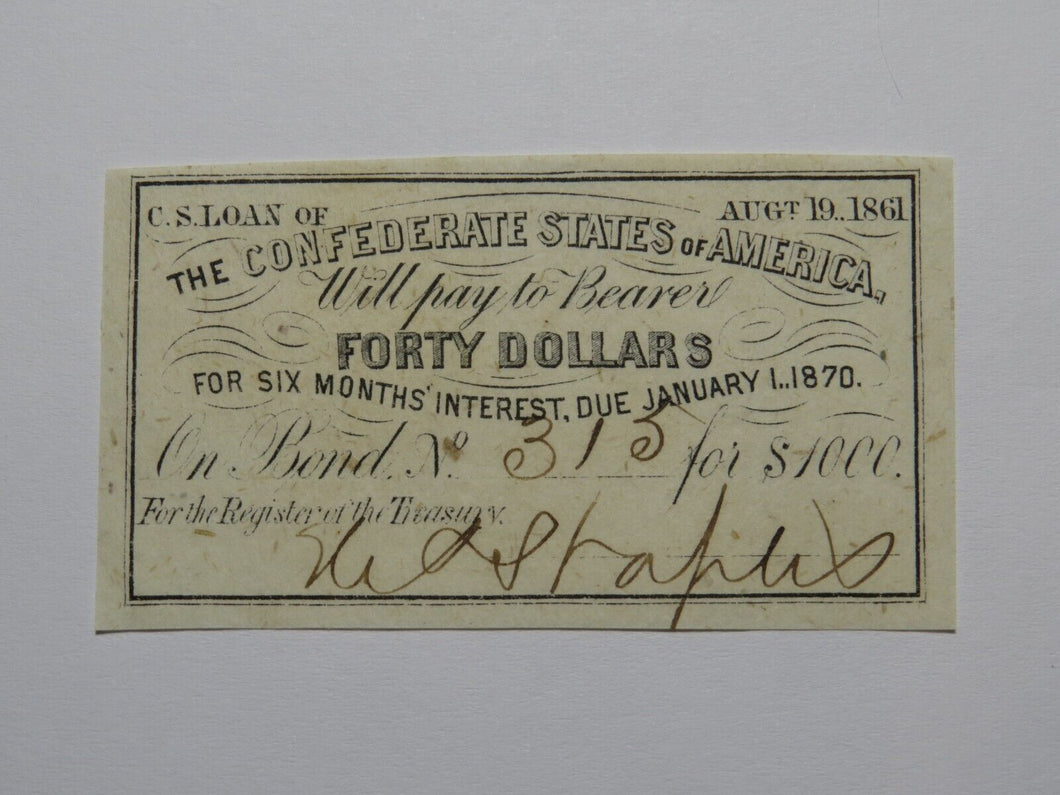 C.S. LOAN OF AUGT 19..1861
THE CONFEDERATE STATES OF AMERICA.,
Will pay to Bearer
FORTY DOLLARS
FOR SIX MONTHS' INTEREST, DUE JANUARY 1..1870.
On Bond. No 315 for $1000.
For the Register of the Treasury.
Staples